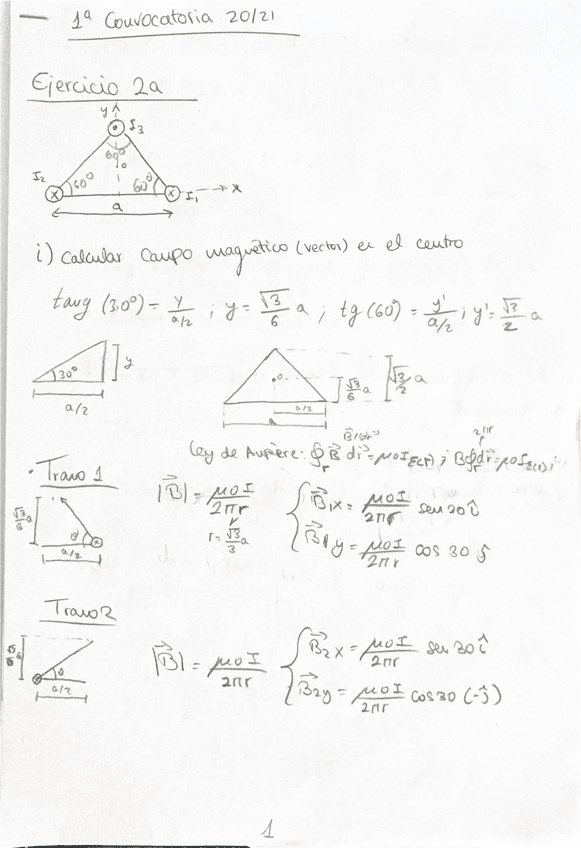 1ª Convocatoria 20/21
Ejercicio 2a
y
I3
60º
0
I2
60º
60º
I1
x
a
i) Calcular Campo magnético (vector) en el centro
tang (30º) = y / a/2 ; y = √3/6 a ; tg (60º) = y' / a/2 ; y' = √3/2 a
30º
y
a/2
0
√3/6 a
√3/2 a
a/2
a
Ley de Ampère: ∮Γ B⃗ dl⃗ = μ0 I
2πr
Tramo 1
√3/6 a
a/2
|B⃗| = μ0 I / 2πr
r = √3/3 a
B⃗1x = μ0 I / 2πr sen 30 î
B⃗1y = μ0 I / 2πr cos 30 ĵ
Tramo 2
a/2
|B⃗| = μ0 I / 2πr
B⃗2x = μ0 I / 2πr sen 30 î
B⃗2y = μ0 I / 2πr cos 30 (-ĵ)
1